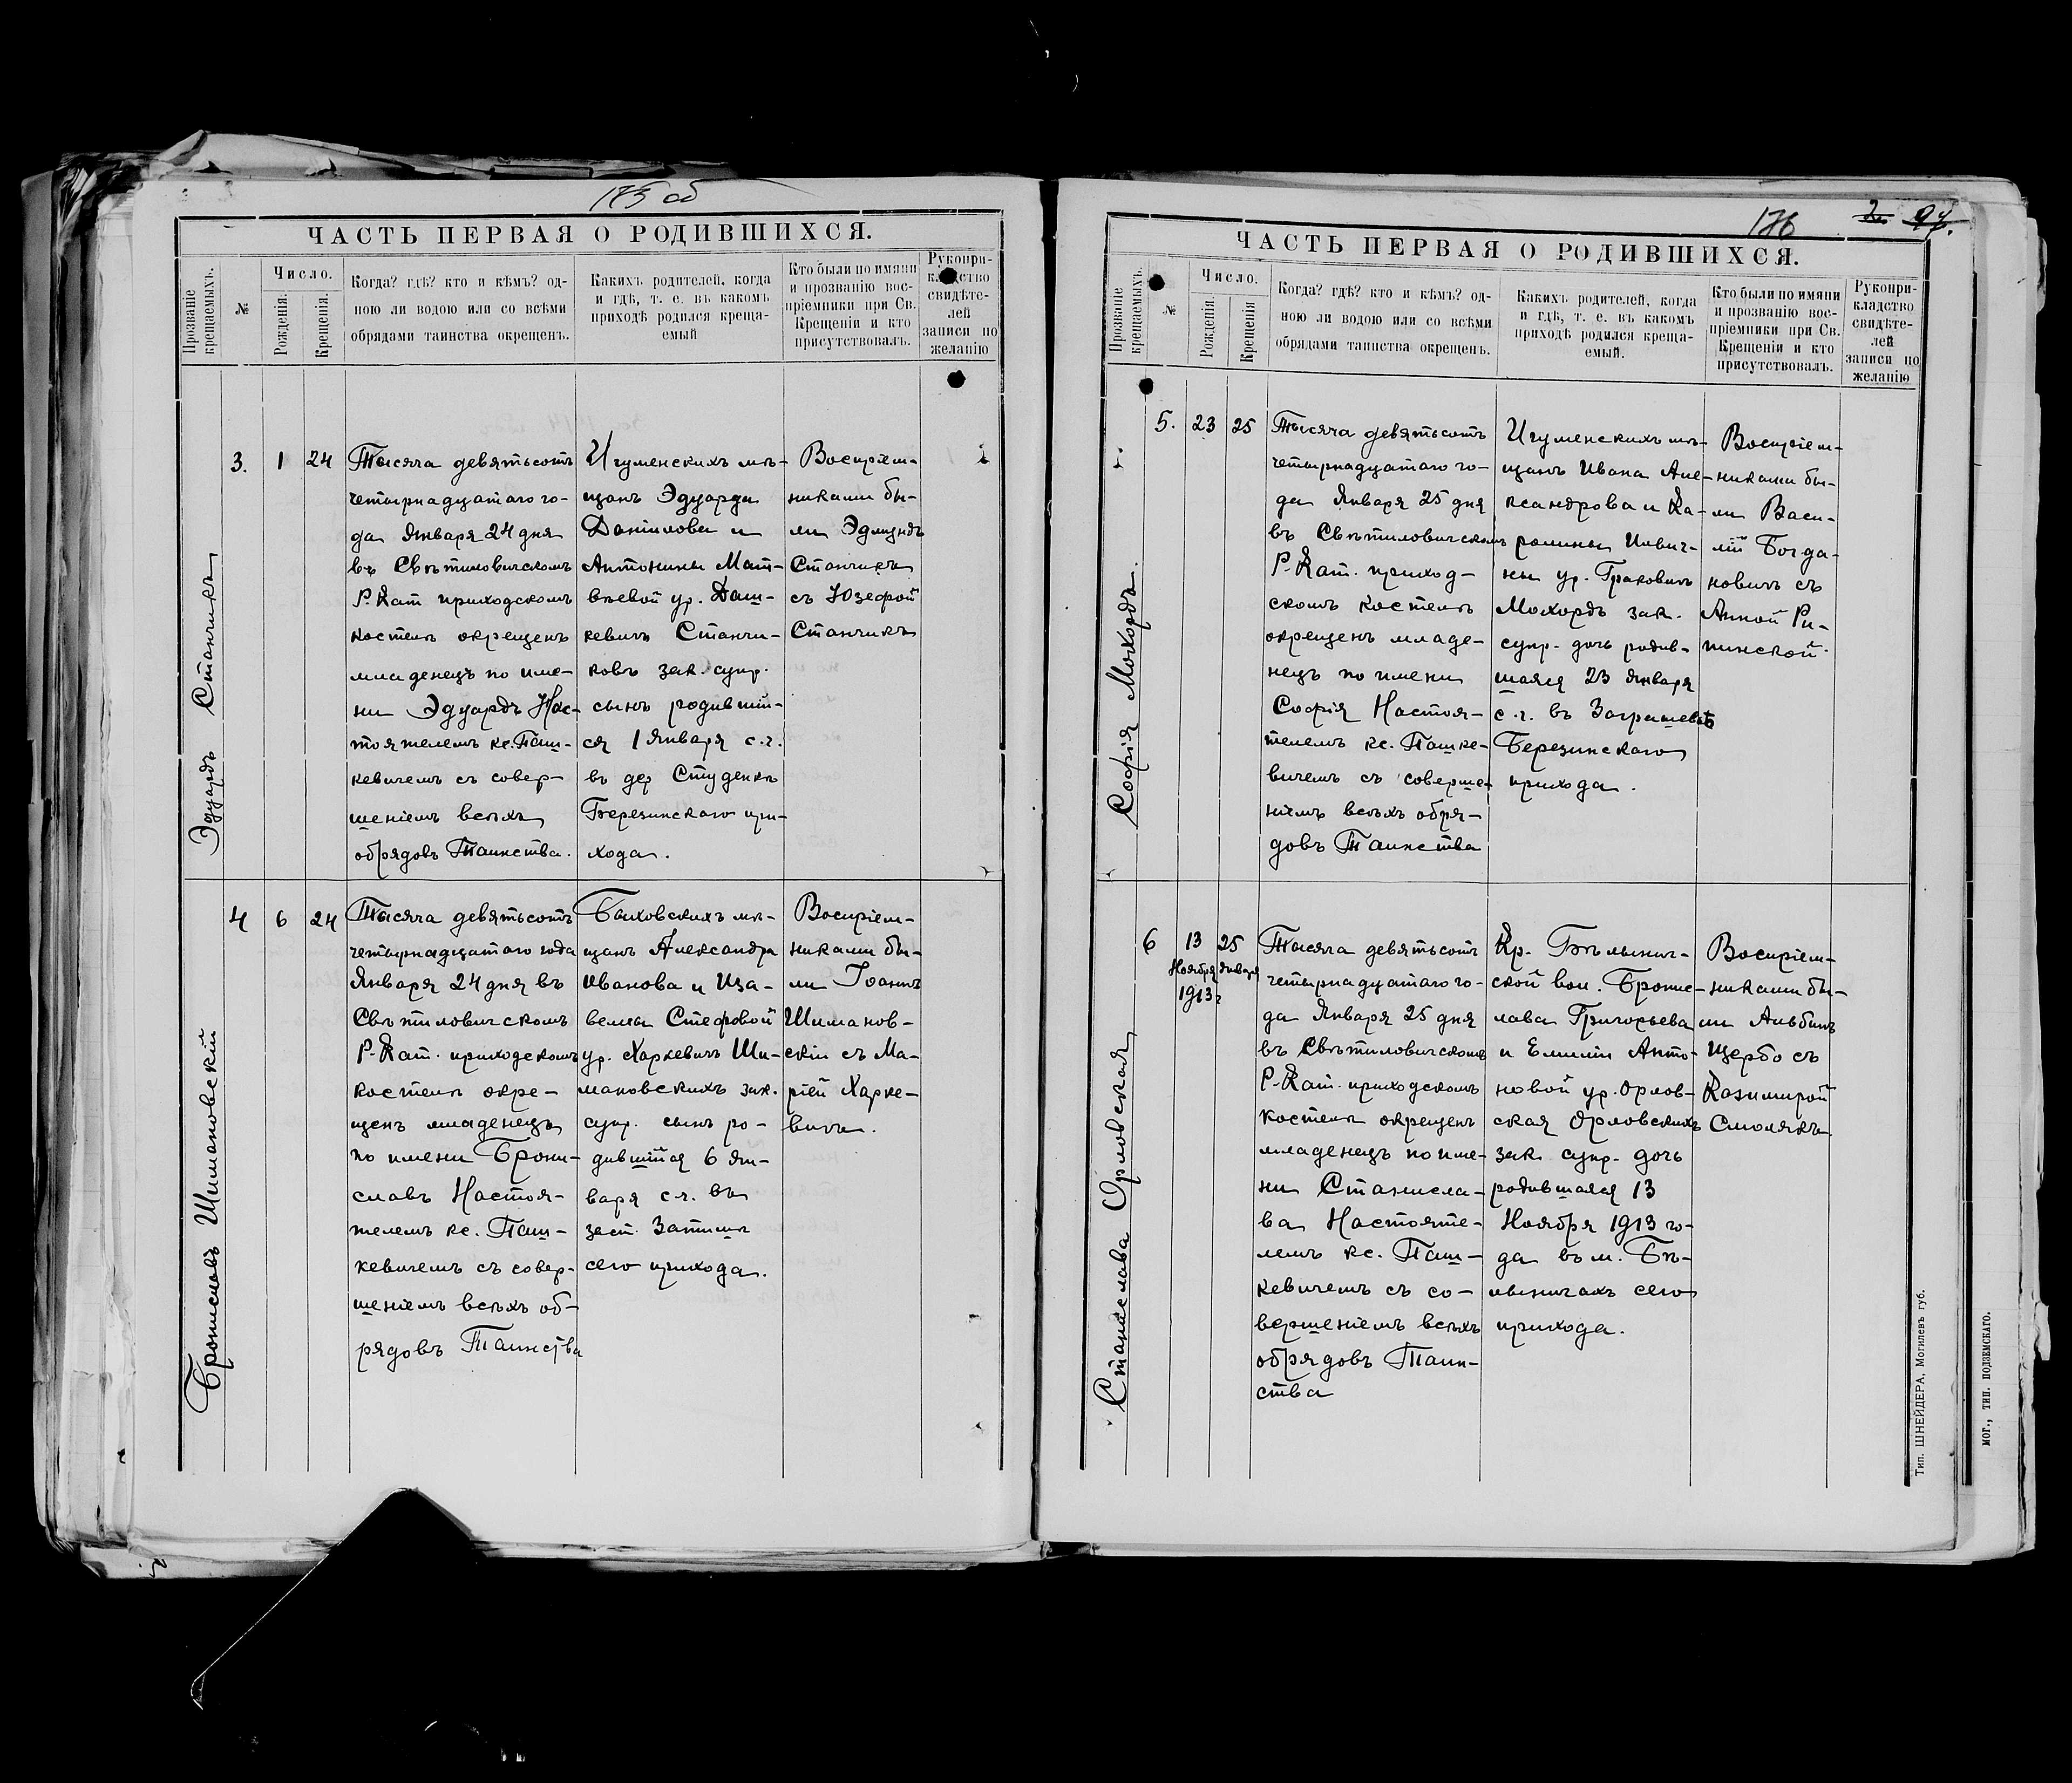 175 об
ЧАСТЬ ПЕРВАЯ О РОДИВШИХСЯ.
Прозваніе крещаемыхъ.
№
Число.
Рожденія.
Крещенія.
Когда? гдѣ? кто и кѣмъ? од-
ною ли водою или со всѣми
обрядами таинства окрещенъ.
Какихъ родителей, когда
и гдѣ, т. е. въ какомъ
приходѣ родился креща-
емый
Кто были по имяни
и прозванію вос-
пріемники при Св.
Крещеніи и кто
присутствовалъ.
Рукопри-
кладство
свидѣте-
лей
записи по
желанію
Эдуардъ Станчикъ
3.
1
24
Тысяча девятьсотъ
четырнадцатаго го-
да Января 24 дня
въ Свѣтиловичскомъ
Р. Кат приходскомъ
костелѣ окрещенъ
младенецъ по име-
ни Эдуардъ Нас-
тоятелемъ кс. Паш-
кевичемъ съ совер-
шеніемъ всѣхъ
обрядовъ Таинства.
Игуменскихъ мѣ-
щанъ Эдуарда
Данилова и
Антонины Мат-
вѣевой ур. Даш-
кевичъ Станчи-
ковъ зак. супр.
сынъ родившій-
ся 1 Января с.г.
въ дер Студенкѣ
Березинскаго при-
хода.
Воспріем-
никами бы-
ли Эдмундъ
Станчикъ
съ Юзефой
Станчикъ
Брониславъ Шимановскій
4
6
24
Тысяча девятьсотъ
четырнадцатаго года
Января 24 дня въ
Свѣтиловичскомъ
Р. Кат. приходскомъ
костелѣ окре-
щенъ младенецъ
по имени Брони-
славъ Настоя-
телемъ кс. Паш-
кевичемъ съ совер-
шеніемъ всѣхъ об-
рядовъ Таинства
Быховскихъ мѣ-
щанъ Александра
Иванова и Иза-
беллы Стефовой
ур. Харкевичъ Ши-
мановскихъ зак.
супр. сынъ ро-
дившійся 6 Ян-
варя с.г. въ
заст. Затишьѣ
сего прихода.
Воспріем-
никами бы-
ли Іоаннъ
Шиманов-
скій съ Ма-
ріей Харке-
вичъ.
176
2 97.
ЧАСТЬ ПЕРВАЯ О РОДИВШИХСЯ.
Прозваніе крещаемыхъ.
№
Число.
Рожденія.
Крещенія
Когда? гдѣ? кто и кѣмъ? од-
ною ли водою или со всѣми
обрядами таинства окрещенъ.
Какихъ родителей, когда
и гдѣ, т. е. въ какомъ
приходѣ родился креща-
емый.
Кто были по имяни
и прозванію вос-
пріемники при Св.
Крещеніи и кто
присутствовалъ.
Рукопри-
кладство
свидѣте-
лей
записи по
желанію
Софія Мохордъ.
5.
23
25
Тысяча девятьсотъ
четырнадцатаго го-
да Января 25 дня
въ Свѣтиловичскомъ
Р. Кат. приход-
скомъ костелѣ
окрещенъ младе-
нецъ по имени
Софія Настоя-
телемъ кс. Пашке-
вичемъ съ соверше-
ніемъ всѣхъ обря-
довъ Таинства
Игуменскихъ мѣ-
щанъ Ивана Але-
ксандрова и Ка-
ролины
ны ур.
Мохордъ зак.
супр. дочь родив-
шаяся 23 Января
с.г. въ
Березинскаго
прихода.
Воспріем-
никами бы-
ли Васи-
лій Богда-
новичъ съ
Анной Ри-
пинской.
Станислава Орловская
6
13
Ноября
1913 г
25
Января
Тысяча девятьсотъ
четырнадцатаго го-
да Января 25 дня
въ Свѣтиловичскомъ
Р. Кат. приходскомъ
костелѣ окрещенъ
младенецъ по име-
ни Станисла-
ва Настояте-
лемъ кс. Паш-
кевичемъ съ со-
вершеніемъ всѣхъ
обрядовъ Таин-
ства
Кр. Бѣлынич-
ской вол. Брони-
слава Григорьева
и Емиліи Анто-
новой ур. Орлов-
ская Орловскихъ
зак. супр. дочь
родившаяся 13
Ноября 1913 го-
да въ м. Бѣ-
лыничахъ сего
прихода.
Воспріем-
никами бы-
ли Альбинъ
Щербо съ
Казимирой
Смолякъ.
Тип. ШНЕЙДЕРА, Могилевъ губ.
МОГ., ТИП. ПОДЗЕМСКАГО.